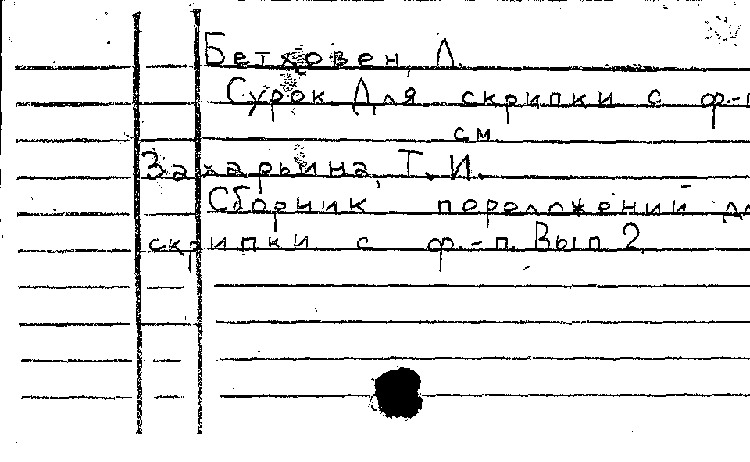 Бетховен, Л.
Сурок. Для скрипки с ф.-п
см.
Захарьина, Т. И.
Сборник переложений дл
скрипки с ф.-п. Вып 2